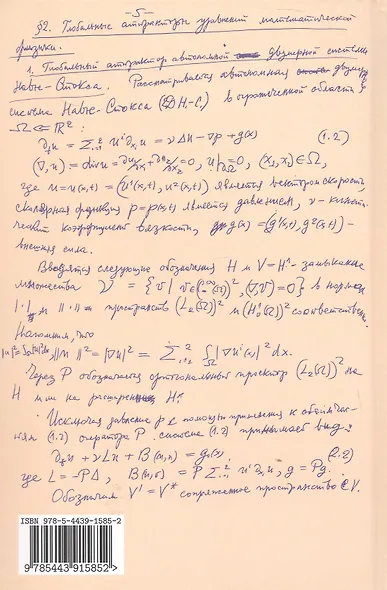 - 5 -
§2. Глобальные аттракторы уравнений математической
физики.
1. Глобальный аттрактор автономной двумерной системы
Навье-Стокса. Рассматривается автономная двумер
система Навье-Стокса (2D Н-С) в ограниченной области
Ω ⋐ ℝ²:
∂ₜu + Σᵢ₌₁² uⁱ∂ₓᵢu = νΔu − ∇p + g(x) (1.2)
(∇,u) = div u = ∂u¹/∂x₁ + ∂u²/∂x₂ = 0, u|∂Ω = 0, (x₁,x₂) ∈ Ω,
где u = u(x,t) = (u¹(x,t), u²(x,t)) является вектором скорости,
скалярная функция p = p(x,t) является давлением, ν - кинемати
ческий коэффициент вязкости, g(x) = (g¹(x,t), g²(x,t)) -
внешняя сила.
Вводятся следующие обозначения H и V = H¹ - замыкание
множества 𝒱 = {v | v ∈ (C₀^∞(Ω))², (∇,v) = 0} в нормах
|·| и ||·|| пространств (L₂(Ω))² и (H₀¹(Ω))² соответственно.
Напомним, что
||u||² = |∇u|² = Σᵢ₌₁² ∫_Ω |∇uⁱ(x)|² dx.
Через P обозначается ортогональный проектор (L₂(Ω))² на
H или на расширен H.
Исключая давление p с помощью применения к обеим час-
тям (1.2) оператора P, система (1.2) принимает вид:
∂ₜu + νLu + B(u,u) = g(x). (2.2)
где L = −PΔ, B(u,u) = P Σᵢ₌₁² uⁱ∂ₓᵢu, g = Pg.
Обозначим V' = V* сопряженное пространство к V.
ISBN 978-5-4439-1585-2
9 785443 915852 >